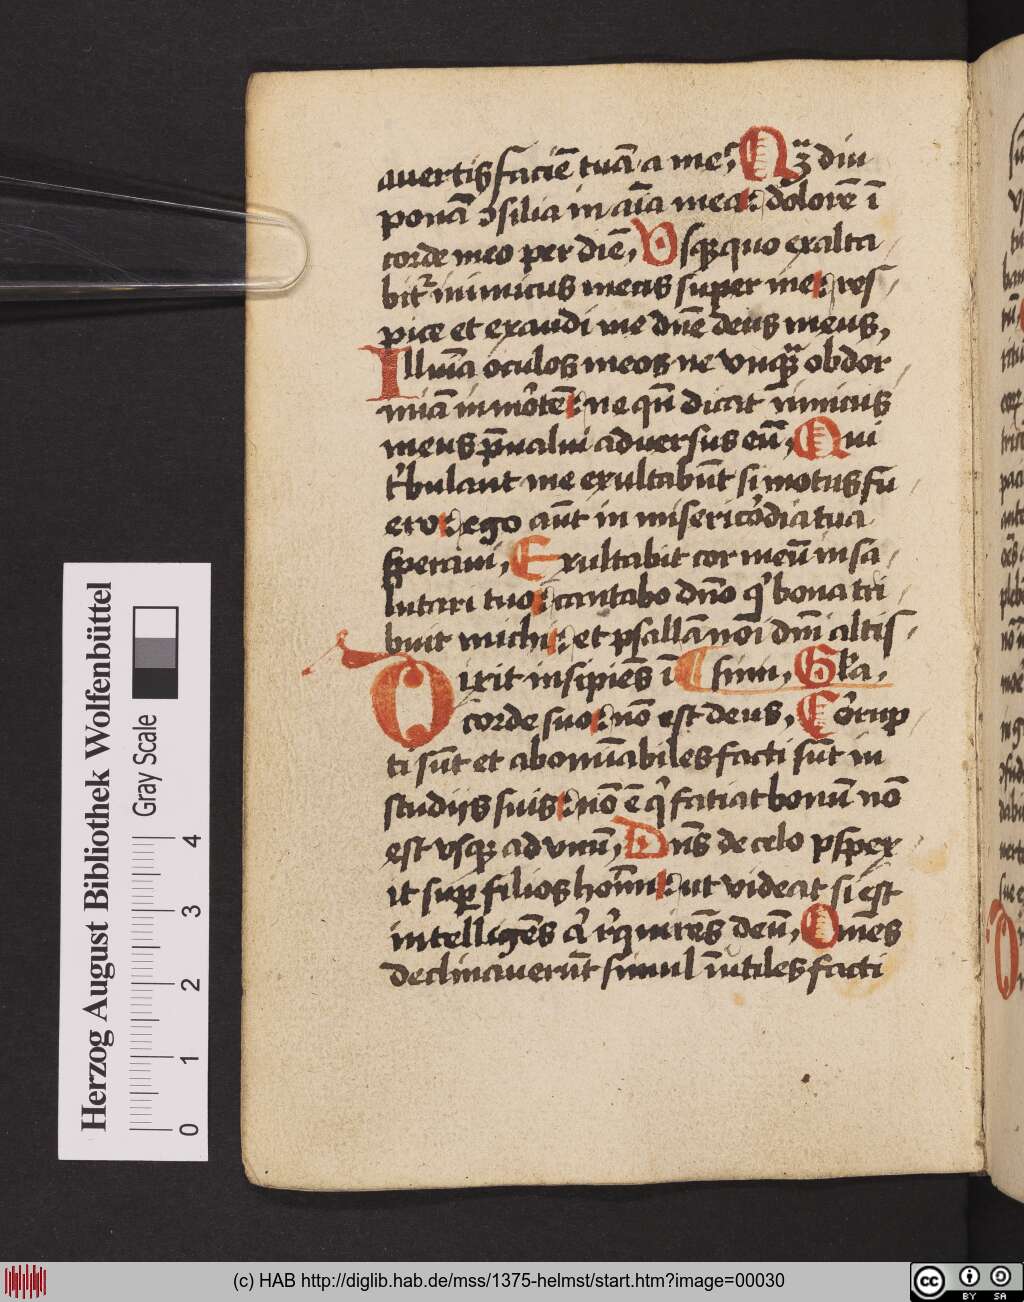 auertis faciē tuā a me, Qꝫ diu
ponā ɔsilia in aīa mea: dolorē ī
corde meo per diē, Vsqꝫquo exalta
bit᷑ inimicus meus super me: res
pice et exaudi me dn̄e deus meus,
Illuīa oculos meos ne vnqꝫ obdor
miā in mo᷑tē: ne qn̄ dicat inimicus
meus p̄ualui aduersus eū, Qui
tͥbulant me exultabūt si motus fu
ero: ego aūt in miserico᷑dia tua
speraui, Exultabit cor meū in sa
lutari tuo: cantabo dn̄o qͥ bona tri
buit michi: et psallā noī dn̄i altis
Dixit insipiēs ī simi, Gl'a,
corde suo: nō est deus, Co᷑rup
ti sūt et abomīabiles facti sūt in
studijs suis: nō ē qͥ fatiat bonū nō
est vsqꝫ ad vnū, Dn̄s de celo ꝓspex
it suꝑ filios hoīm: ut videat si est
intelligēs aͭ req̄uirēs deū, Om̄es
declinauerūt simul īutiles facti
Herzog August Bibliothek Wolfenbüttel
Gray Scale
0 1 2 3 4
(c) HAB http://diglib.hab.de/mss/1375-helmst/start.htm?image=00030
cc BY SA